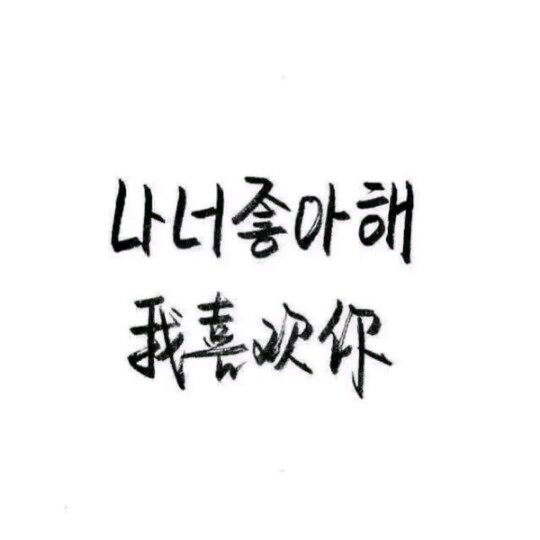 나너좋아해
我喜欢你